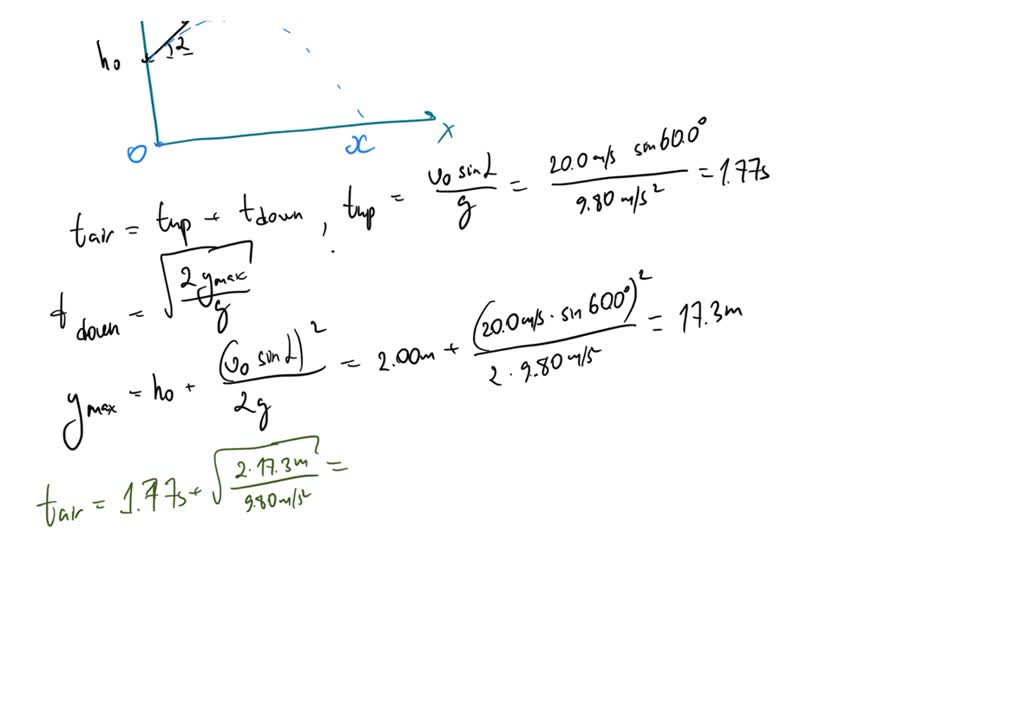 h₀
α
O x X
t air = t up + t down , t up = v₀ sin α / g = 20.0 m/s sin 60.0° / 9.80 m/s² = 1.77s
t down = √(2 y max / g)
y max = h₀ + (v₀ sin α)² / 2g = 2.00m + (20.0 m/s · sin 60.0°)² / 2 · 9.80 m/s² = 17.3m
t air = 1.77s + √(2 · 17.3m / 9.80 m/s²) =